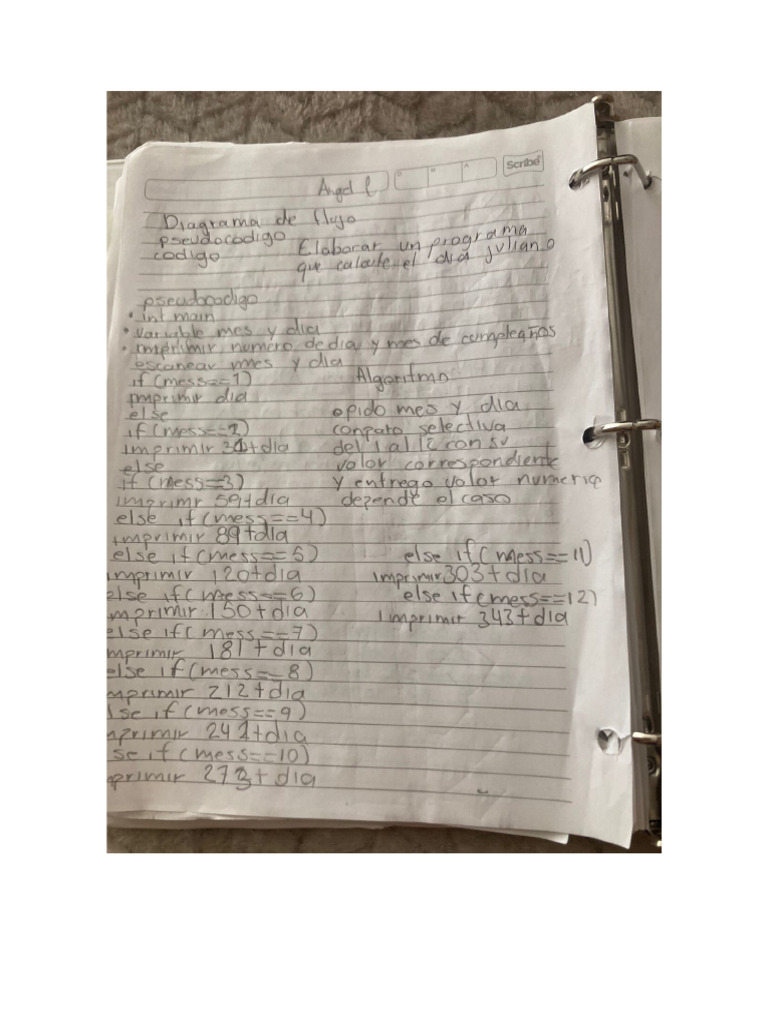 Scribe
D M A
Angel l
Diagrama de flujo
pseudocodigo
codigo
Elaborar un programa
que calcule el dia juliano
pseudocodigo
• int main
• variable mes y dia
• imprimir numero de dia y mes de cumpleaños
escanear mes y dia
if (mess==1)
imprimir dia
else
if (mess==2)
imprimir 31+dia
else
if (mess=3)
imprimr 59+dia
else if (mess==4)
imprimir 89+dia
else if (mess==5)
imprimir 120+dia
else if (mess==6)
mprimir 150+dia
else if (mess==7)
mprimir 181+dia
else if (mess==8)
mprimir 212+dia
lse if (mess==9)
mprimir 242+dia
se if (mess==10)
primir 273+dia
Algoritmo
opido mes y dia
conparo selectiva
del 1 al 12 con su
valor correspondiente
y entrego valor numeric
depende el caso
else if (mess==11)
imprimir 303+dia
else if (mess==12)
imprimir 343+dia